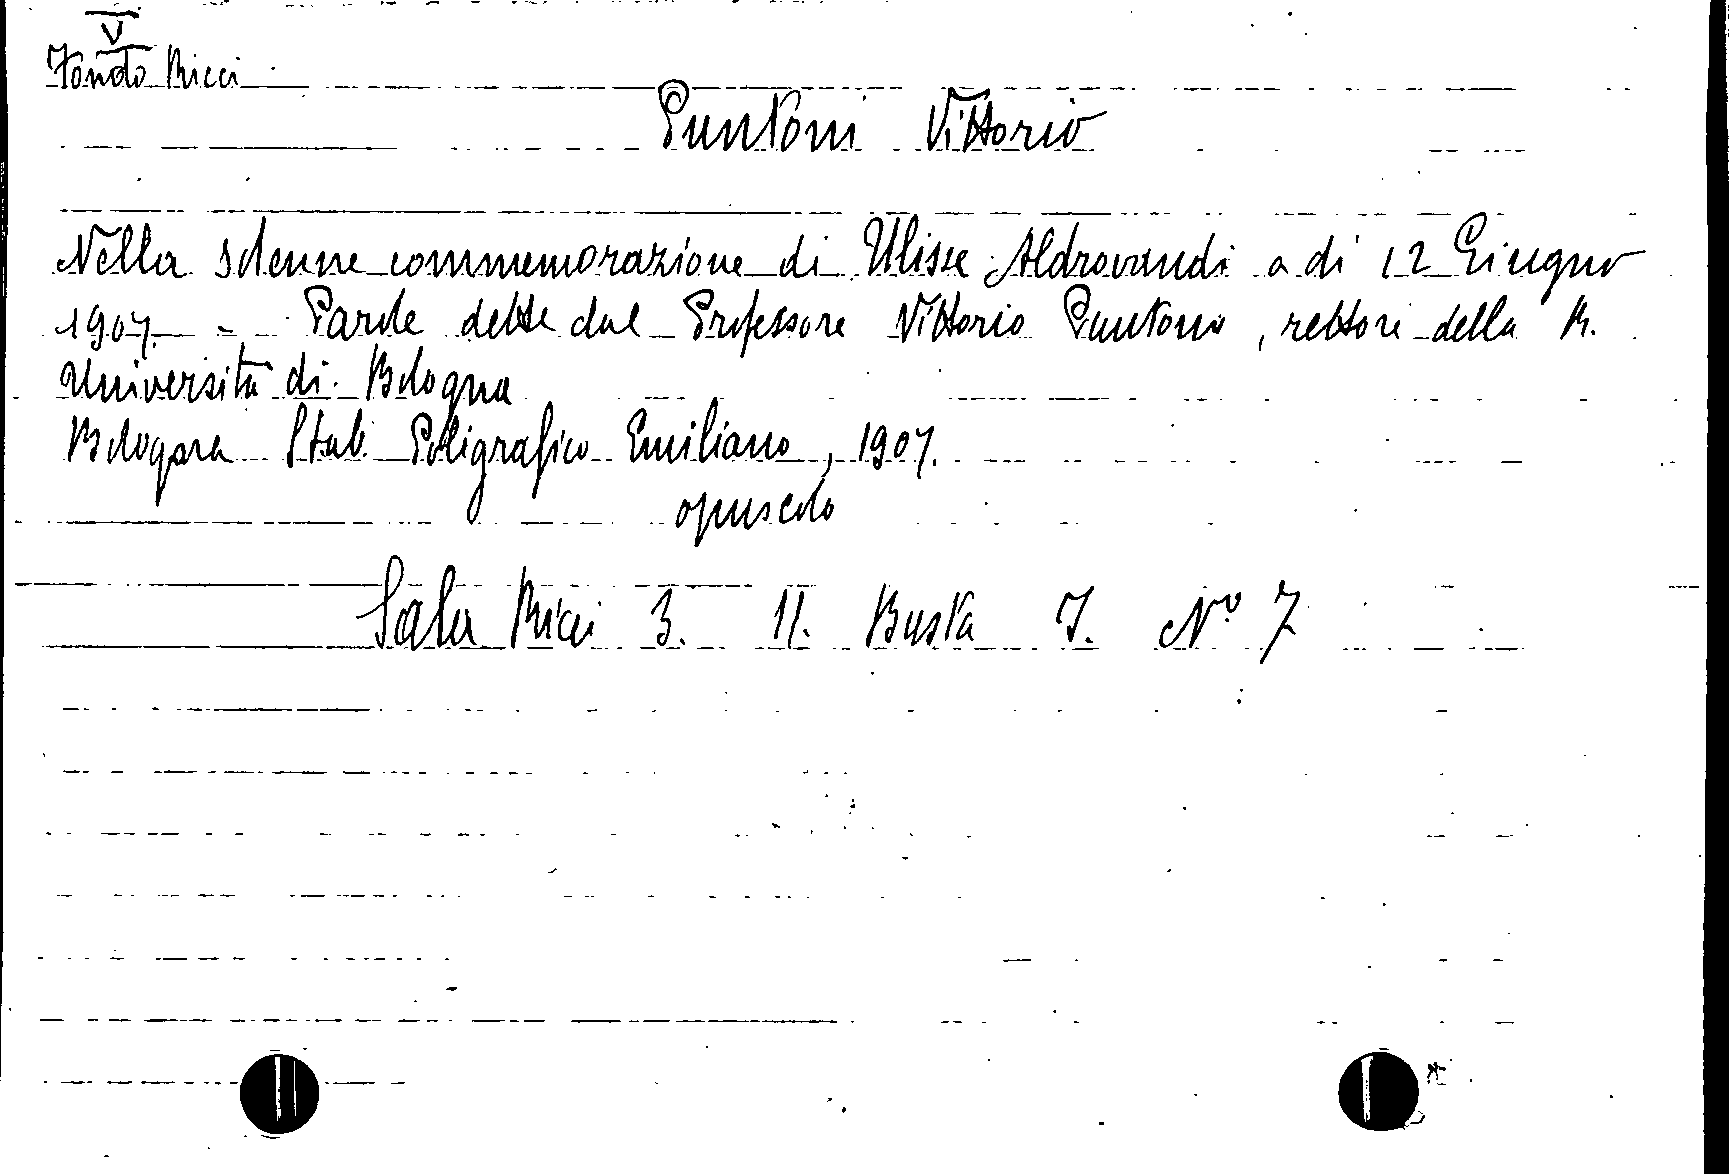 V
Fondo Ricci
Puntoni Vittorio
Nella solenne commemorazione di Ulisse Aldrovandi a di 12 Giugno
1907. - Parole dette dal Professore Vittorio Puntono, rettore della R.
Università di Bologna
Bologna Stab. Poligrafico Emiliano, 1907.
opuscolo
Sala Ricci 3. 11. Busta I. Nº 7